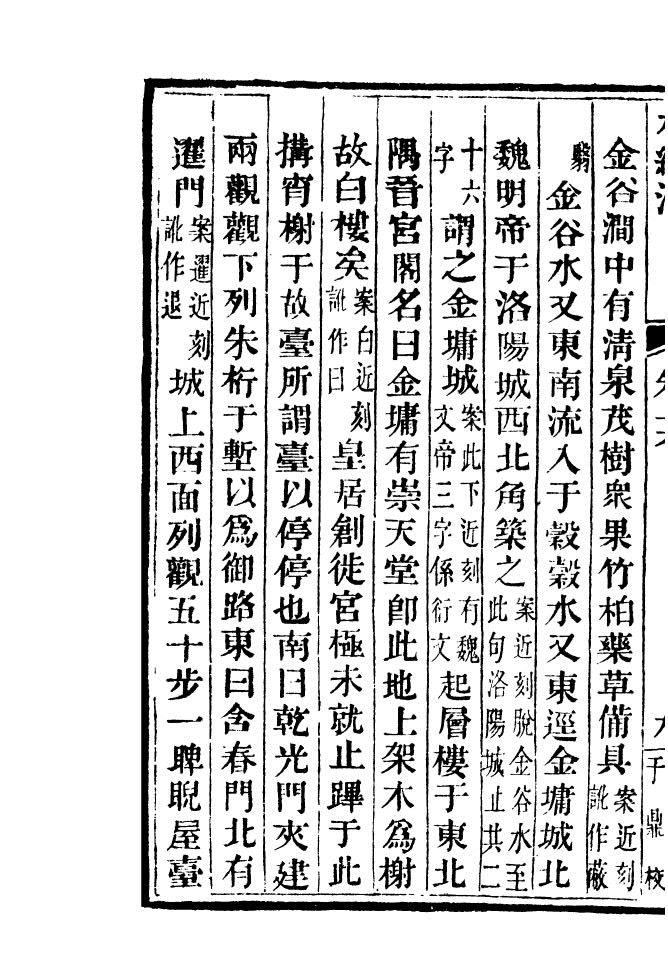 金谷澗中有清泉茂樹衆果竹柏藥草備具案近刻訛作蔽
翳金谷水又東南流入于穀穀水又東逕金墉城北
魏明帝于洛陽城西北角築之案近刻脫金谷水至此句洛陽城止共二
十六字謂之金墉城案此下近刻有魏文帝三字係衍文起層樓于東北
隅晉宮閣名曰金墉有崇天堂卽此地上架木爲榭
故白樓矣案白近刻訛作曰皇居創徙宮極未就止蹕于此
搆宵榭于故臺所謂臺以停停也南曰乾光門夾建
兩觀觀下列朱桁于塹以爲御路東曰含春門北有
䟴門案䟴近刻訛作退城上西面列觀五十步一睥睨屋臺